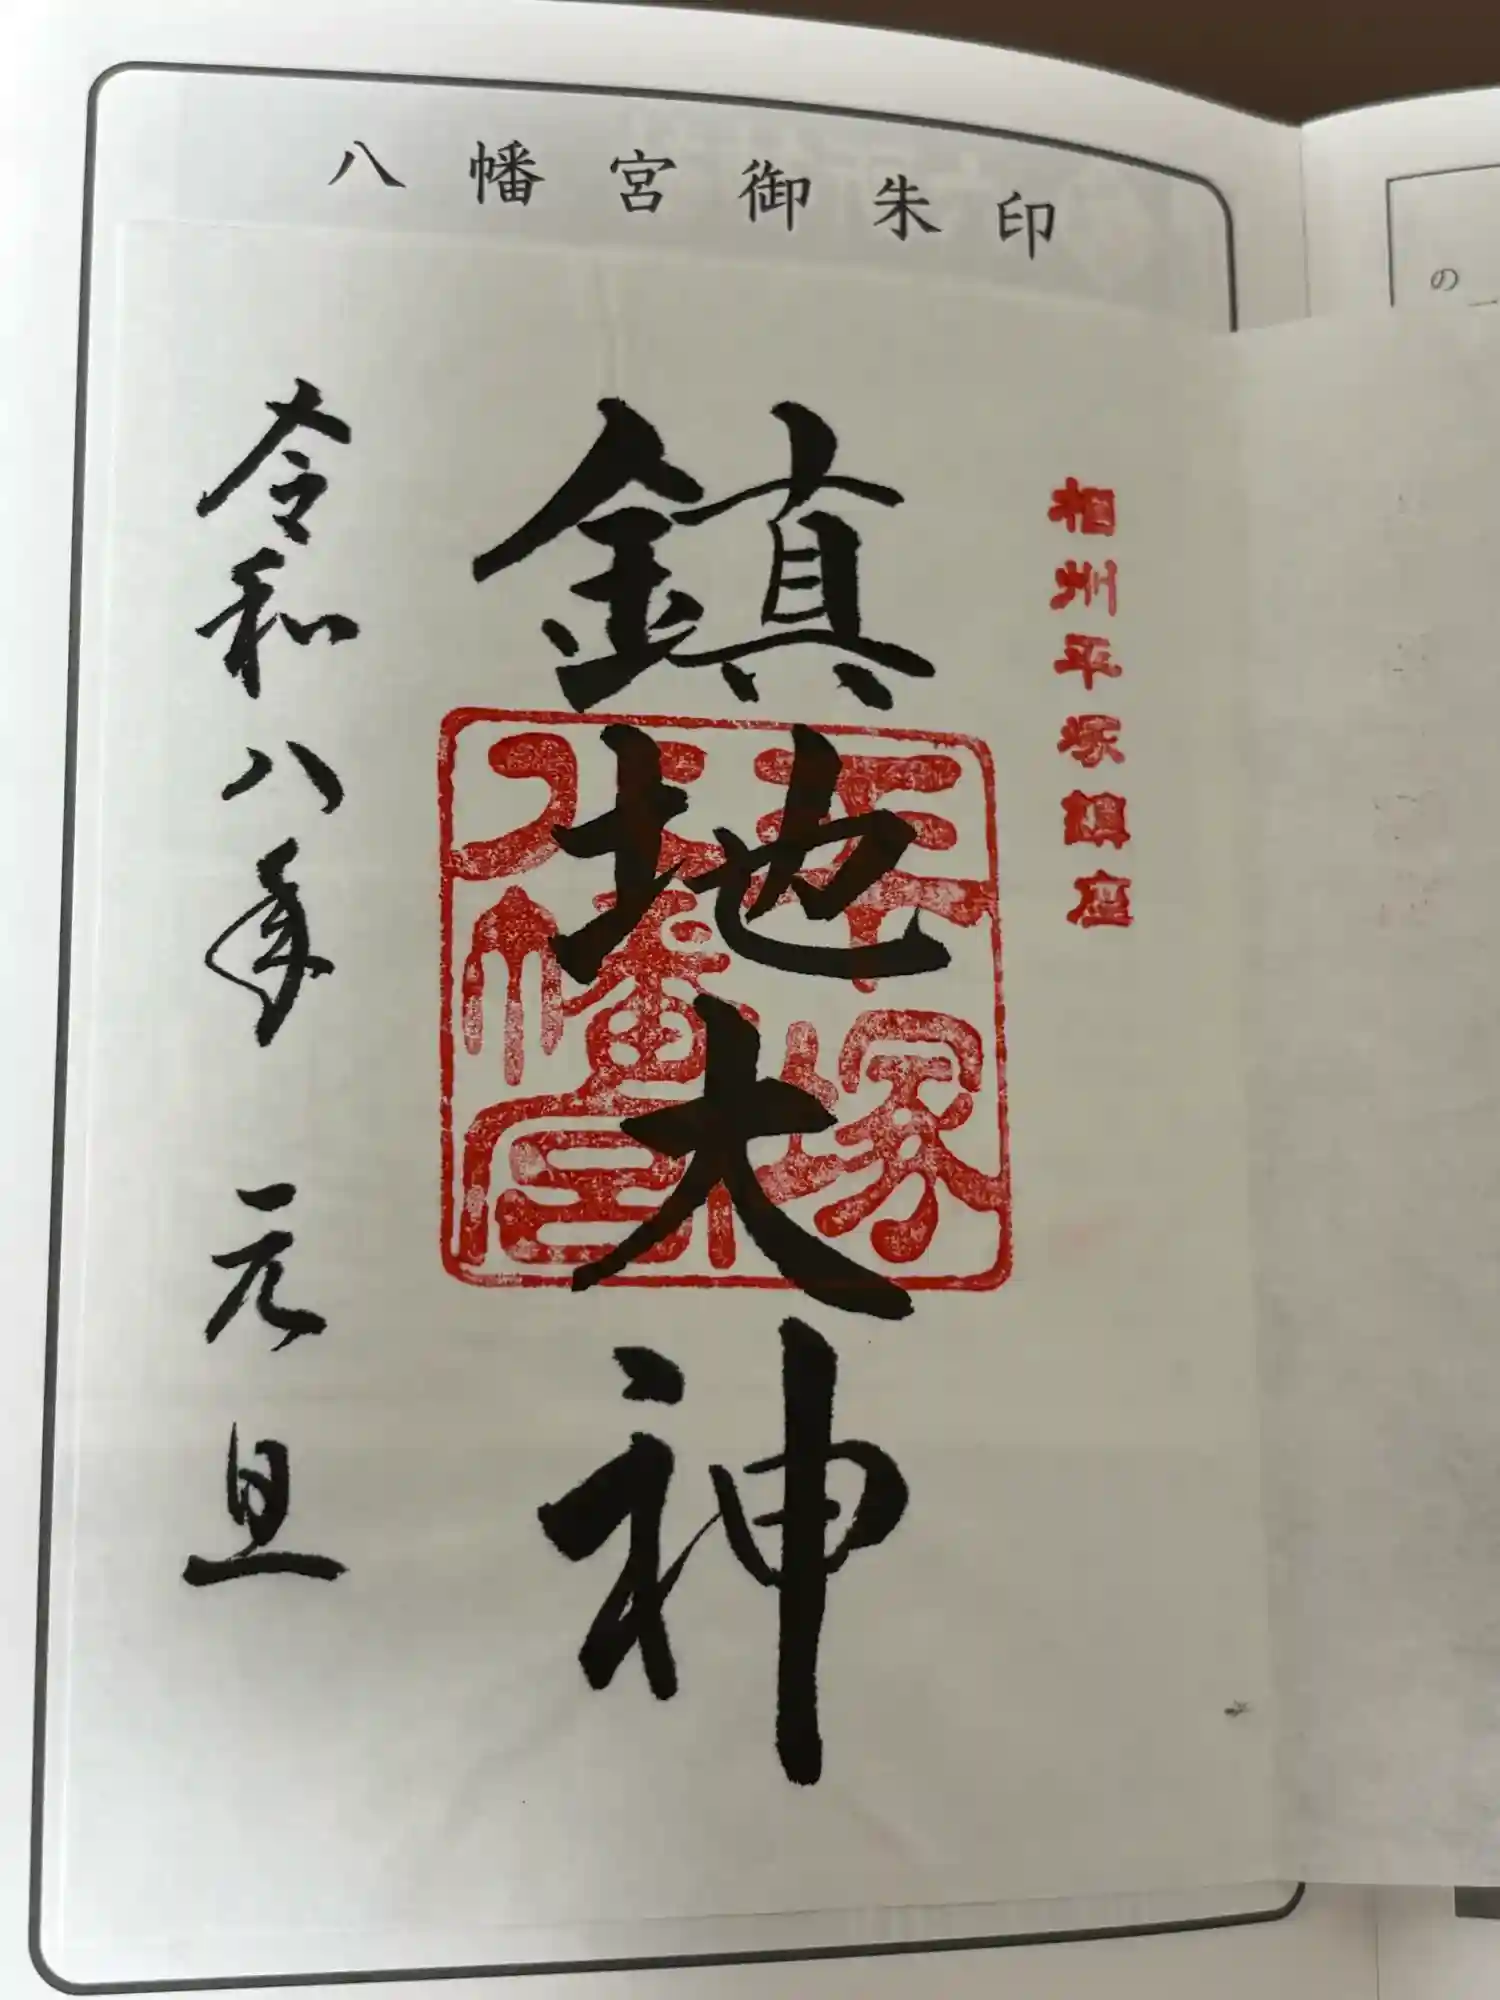 八幡宮御朱印
の
相州平塚鎮座
鎮地大神
平塚
八幡宮
令和八年 元旦